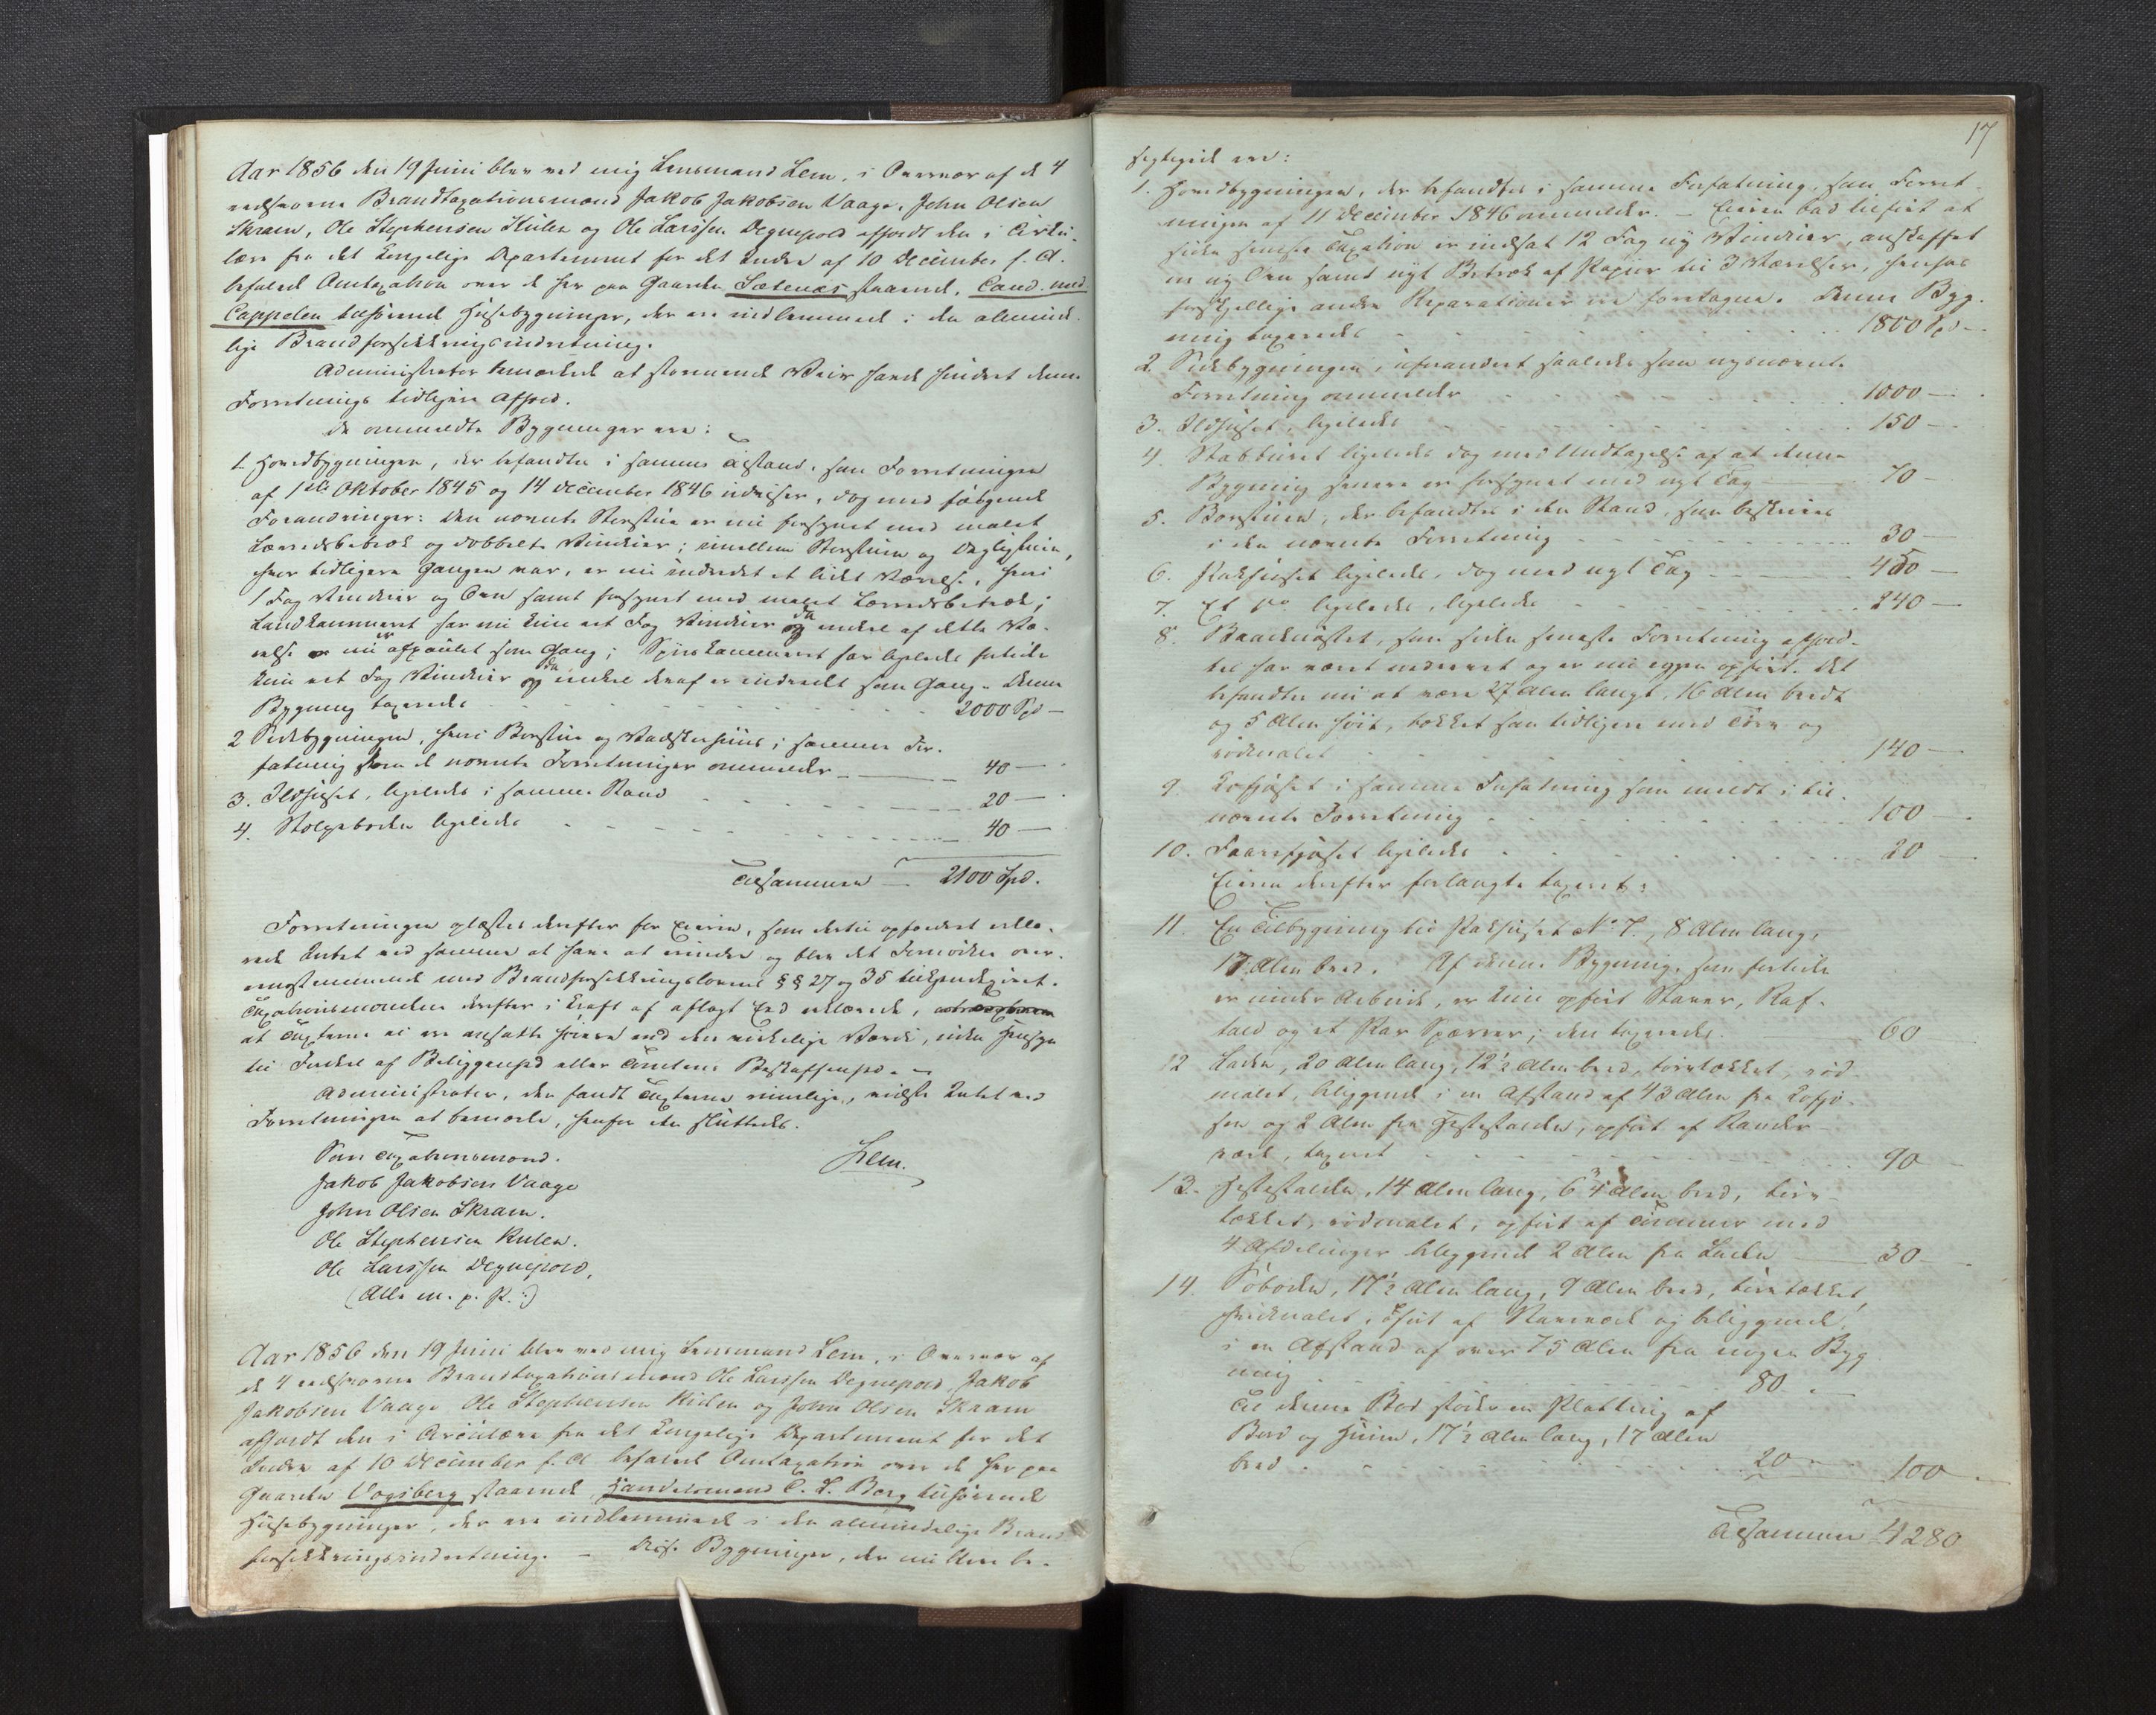 Aar 1856 den 19 Juni blev ved mig Lensmand Lem, i Overvær af de 4
edsvorne Brandtaxationsmænd Jakob Jakobsen Vaage, John Olsen
Skram, Ole Stephensen Hulen og Ole Larssen Degnepold afholdt den i Cirku-
lære fra det Kongelige Departement for det Indre af 10 December f. A.
befalede Omtaxation over de her paa Gaarden Sætenæs staaende, Cand. med.
Cappelen tilhørende Husebygninger, der ere indlemmede i den alminde-
lige Brandforsikkringsindretning.
Administrator bemærkede at stormende Veir havde hindret denne
Forretnings tidligere Afhold.
De ommeldte Bygninger ere:
1. Hovedbygningen, der befandtes i samme Tilstand, som Forretningen
af 1ste Oktober 1845 og 14 December 1846 udviser, dog med følgende
Forandringer: Den nævnte Storstue er nu forsynet med malet
Lærredsbetræk og dobbelte Vinduer; imellem Storstuen og Dagligstuen,
hvor tidligere Gangen var, er nu indredet et lidet Værelse, hvori
1 Fag Vinduer og Ovn samt forsynet med malet Lærredsbetræk;
Landkammeret har nu kun et Fag Vinduer da endel af dette Væ-
relse er nu afpanlet som Gang; Spiskammeret har ligeledes
kun et Fag Vinduer da endel deraf er indredet som Gang. Denne
Bygning taxeredes 2000 Spd -
2 Sidebygningen, hvori Borstue og Vadskerhuus i samme For-
fatning som de nævnte Forretninger ommelder 40 -
3. Ildhuset, ligeledes i samme Stand 20 -
4. Stolpeboden ligeledes 40 -
Tilsammen 2100 Spd.
Forretningen oplæstes derefter for Eieren, som dertil opfordret erklæ-
rede Intet ved samme at have at erindre og blev det Fornødne over-
ensstemmende med Brandforsikkringslovens §§ 27 og 35 tilkjendegivet.
Taxationsmændene derefter i Kraft af aflagt Eed erklærede,
at Taxterne ei ere ansatte høiere end den virkelige Værdi, uden Hensyn
til Fordel af Beliggenhed eller Tomtens Beskaffenhed. -
Administrator, der fandt Taxterne rimelige, vidste Intet ved
Forretningen at bemærke, hvorfor den sluttedes.
Som Taxationsmænd. Lem.
Jakob Jakobsen Vaage
John Olsen Skram.
Ole Stephensen Hulen.
Ole Larssen Degnepold,
(Alle m. p. P.:)
Aar 1856 den 19 Juni blev ved mig Lensmand Lem, i Overvær af
de 4 edsvorne Brandtaxationsmænd Ole Larssen Degnepold, Jakob
Jakobsen Vaage, Ole Stephensen Hulen og John Olsen Skram
afholdt den i Circulære fra det Kongelige Departement for det
Indre af 10 December f. A. befalede Omtaxation over de her paa
Gaarden Vogsberg staaende, Handelsmand C. L. Borg tilhørende
Husebygninger, der ere indlemmede i den almindelige Brand-
forsikkringsindretning. - Disse Bygninger, der nu blev be-
17
sigtigede ere:
1. Hovedbygningen, der befandtes i samme Forfatning, som Forret-
ningen af 11 December 1846 ommelder. - Eieren bad tilført at
siden seneste Taxation er indsat 12 Fag ny Vinduer, anskaffet
en ny Ovn samt nyt Betræk af Papiir til 3 Værelser,
forskjellige andre Reparationer er foretagne. Denne Byg-
ning taxeredes 1800 Spd -
2 Sidebygningen, uforandret saaledes som nysnævnte
Forretning ommelder 1000 -
3. Ildhuset, ligeledes 150 -
4. Stabburet ligeledes dog med Undtagelse af at denne
Bygning senere er forsynet med nyt Tag 70 -
5. Borstuen, der befandtes i den Stand, som beskrives
i den nævnte Forretning 30 -
6. Pakhuset ligeledes, dog med nyt Tag 450 -
7. Et do ligeledes, ligeledes 240 -
8. Baadnøstet, som siden seneste Forretning afhold-
tes har været nedrevet og er nu igjen opført. Det
befandtes nu at være 27 Alen langt, 16 Alen bredt
og 5 Alen høit, tækket som tidligere med Torv og
rødmalet 140 -
9. Kofjøset i samme Forfatning som meldt i sid-
nævnte Forretning 100 -
10. Faarefjøset ligeledes 20 -
Eieren derefter forlangte taxeret:
11. En Tilbygning til Pakhuset No 7., 8 Alen lang,
17 Alen bred. Af denne Bygning, som
er under Arbeide, er kun opført Staver, Raf-
tald og et Par Spærrer; den taxeredes 60
12 Laden, 20 Alen lang, 12½ Alen bred, torvtækket, rød-
malet, beliggende i en Afstand af 43 Alen fra Kofjø-
set og 2 Alen fra Hestestalden, opført af Stander-
værk, taxeret 90 -
13. Hestestalden, 14 Alen lang, 6¾ Alen bred, torv-
tækket, rødmalet, opført af Tømmer med
4 Afdelinger beliggende 2 Alen fra Laden 30 -
14. Søboden, 17½ Alen lang, 9 Alen bred, torvtækket,
hvidmalet, opført af Stavværk og beliggende
i en Afstand af over 75 Alen fra nogen Byg-
ning 80 -
Til denne Bod støder en Platting af
Bord og , 17½ Alen lang, 17 Alen
bred 20 - 100 -
Tilsammen 4280